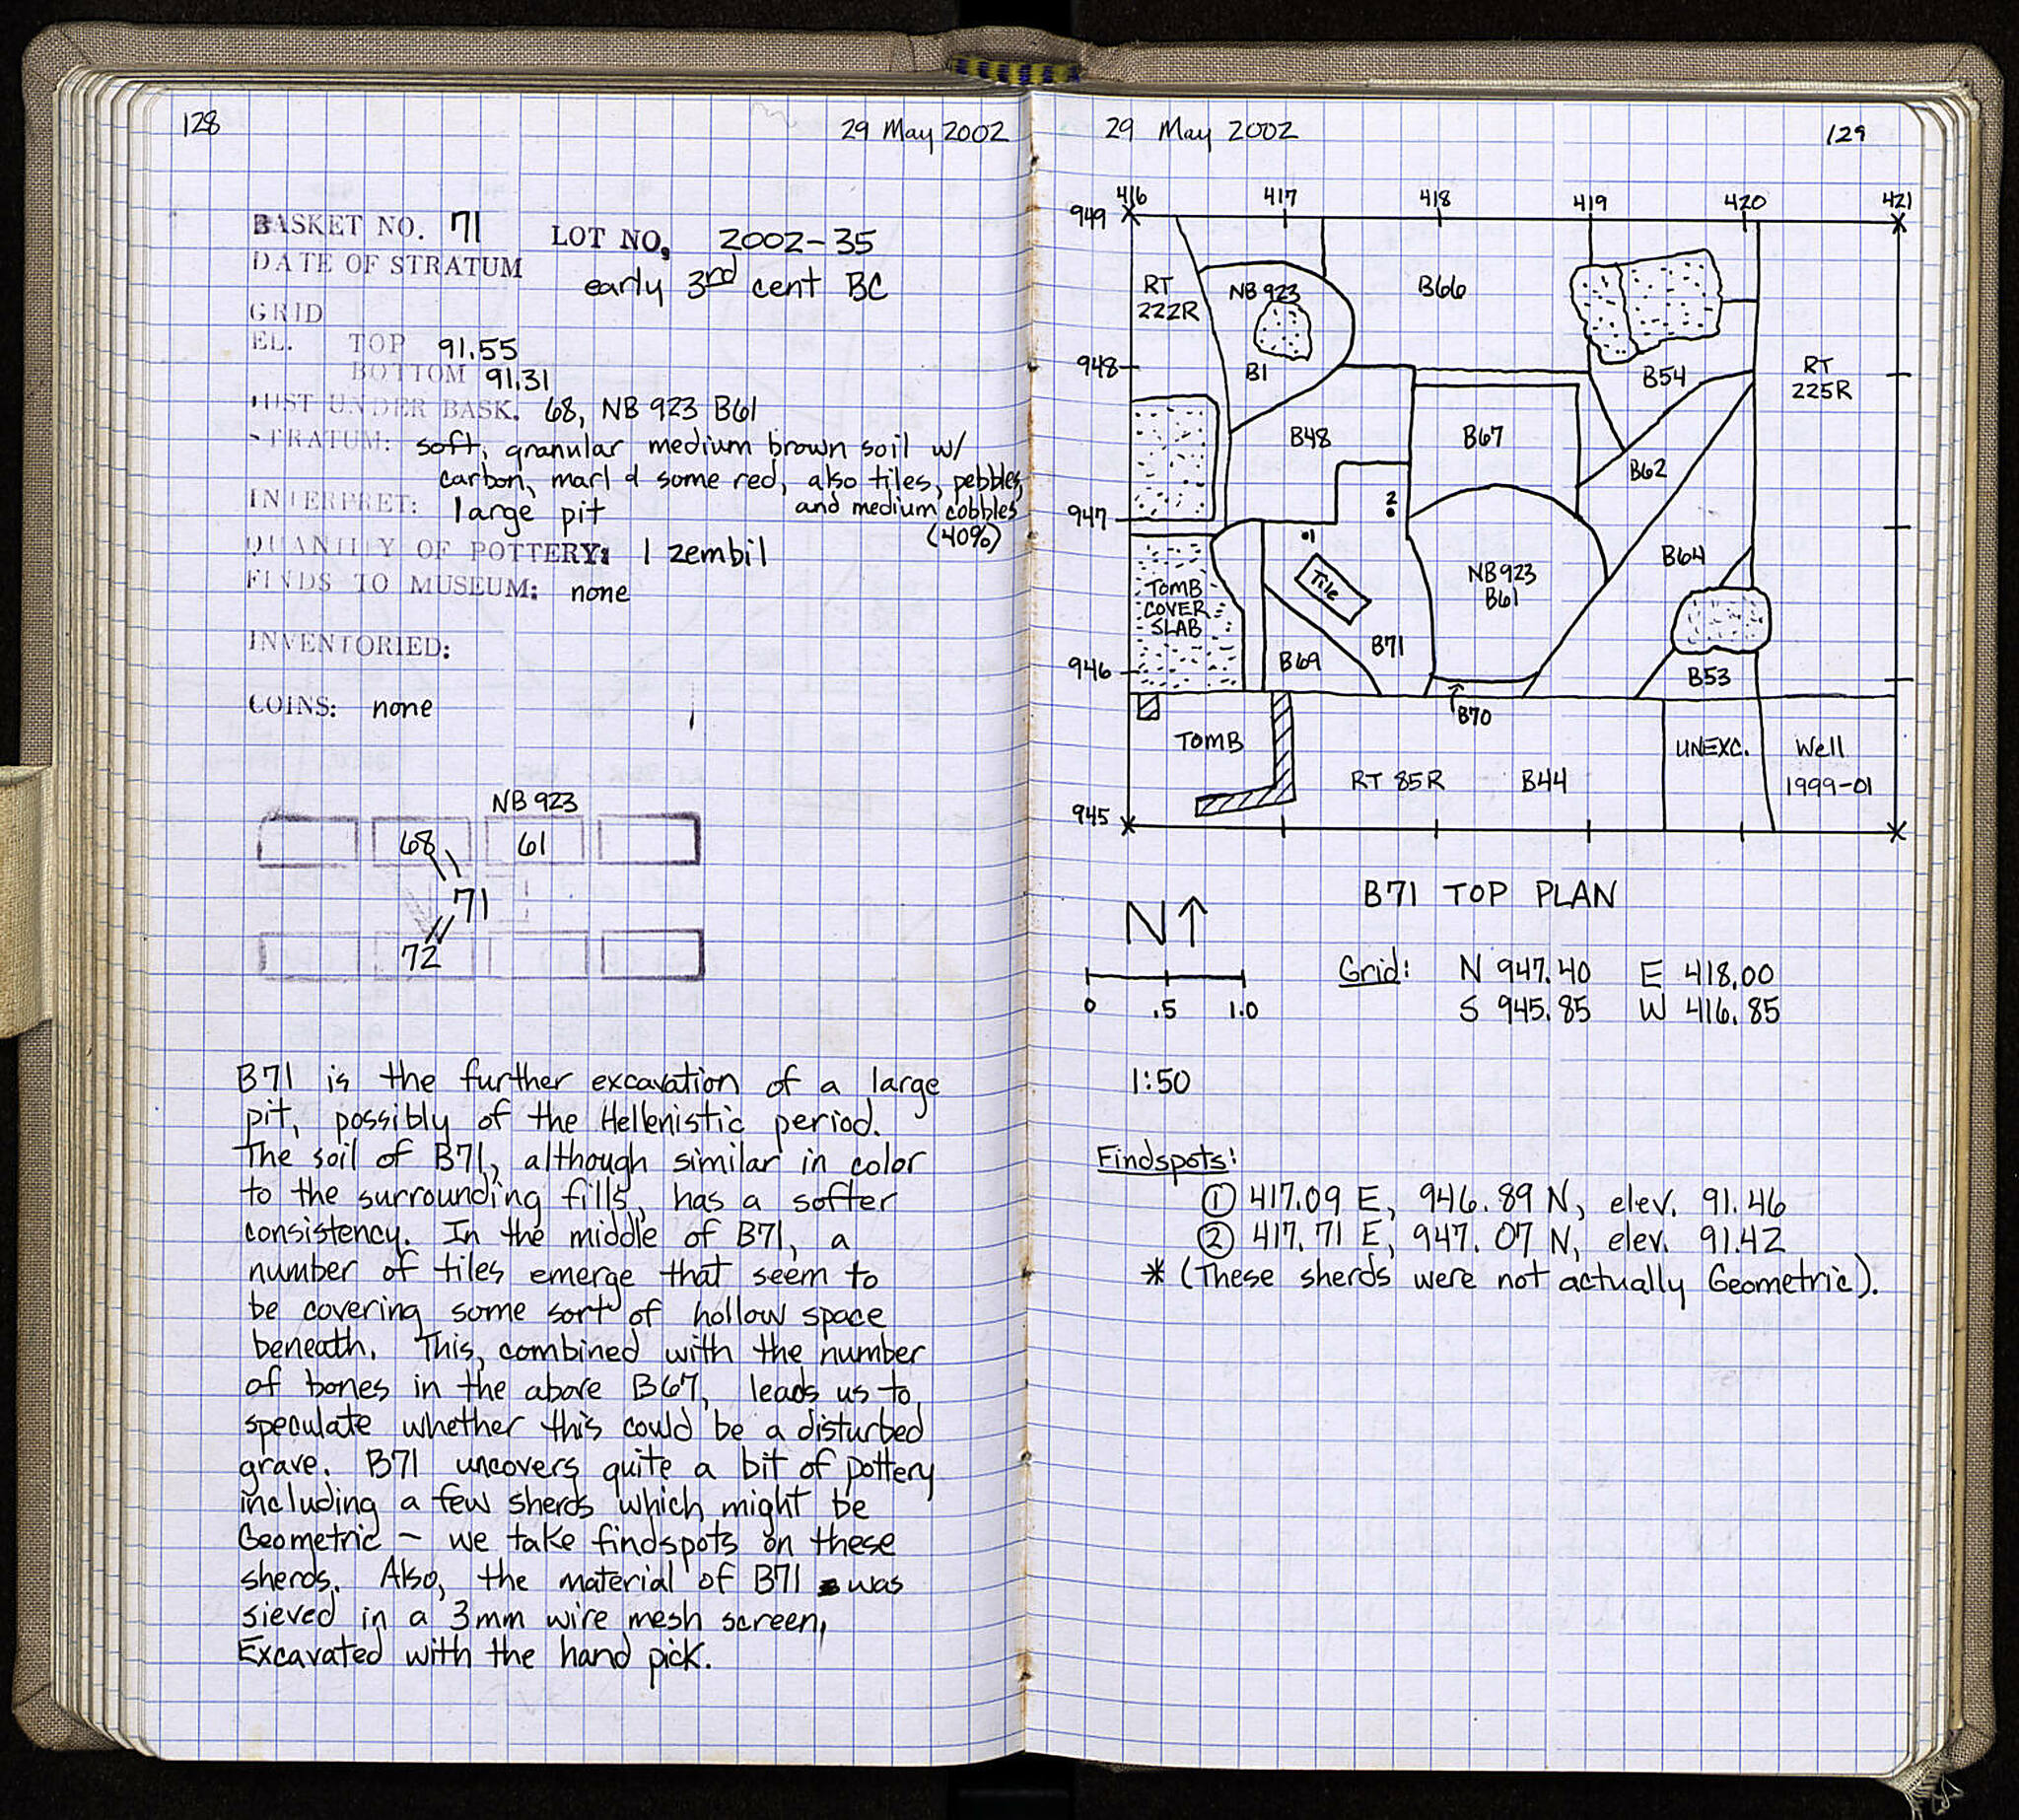 128
29 May 2002
BASKET NO. 71 LOT NO. 2002-35
DATE OF STRATUM early 3rd cent BC
GRID
EL. TOP 91.55
BOTTOM 91.31
JUST UNDER BASK. 68, NB 923 B61
STRATUM: soft, granular medium brown soil w/
carbon, marl & some red, also tiles, pebbles,
and medium cobbles
(40%)
INTERPRET: large pit
QUANTITY OF POTTERY: 1 zembil
FINDS TO MUSEUM: none
INVENTORIED:
COINS: none
NB 923
68 61
71
72
B71 is the further excavation of a large
pit, possibly of the Hellenistic period.
The soil of B71, although similar in color
to the surrounding fills, has a softer
consistency. In the middle of B71, a
number of tiles emerge that seem to
be covering some sort of hollow space
beneath. This, combined with the number
of bones in the above B67, leads us to
speculate whether this could be a disturbed
grave. B71 uncovers quite a bit of pottery
including a few sherds which might be
Geometric – we take findspots on these
sherds. Also, the material of B71 was
sieved in a 3mm wire mesh screen.
Excavated with the hand pick.
29 May 2002
129
416 417 418 419 420 421
949
948
947
946
945
RT
222R
NB 923
B1
B66
B54
RT
225R
B48
B67
B62
2
1
Tile
NB 923
B61
B64
TOMB
COVER
SLAB
B69
B71
B53
B70
TOMB
RT 85R
B44
UNEXC.
Well
1999-01
B71 TOP PLAN
N↑
0 .5 1.0
Grid: N 947.40 E 418.00
S 945.85 W 416.85
1:50
Findspots:
① 417.09 E, 946.89 N, elev. 91.46
② 417.71 E, 947.07 N, elev. 91.42
* (These sherds were not actually Geometric).